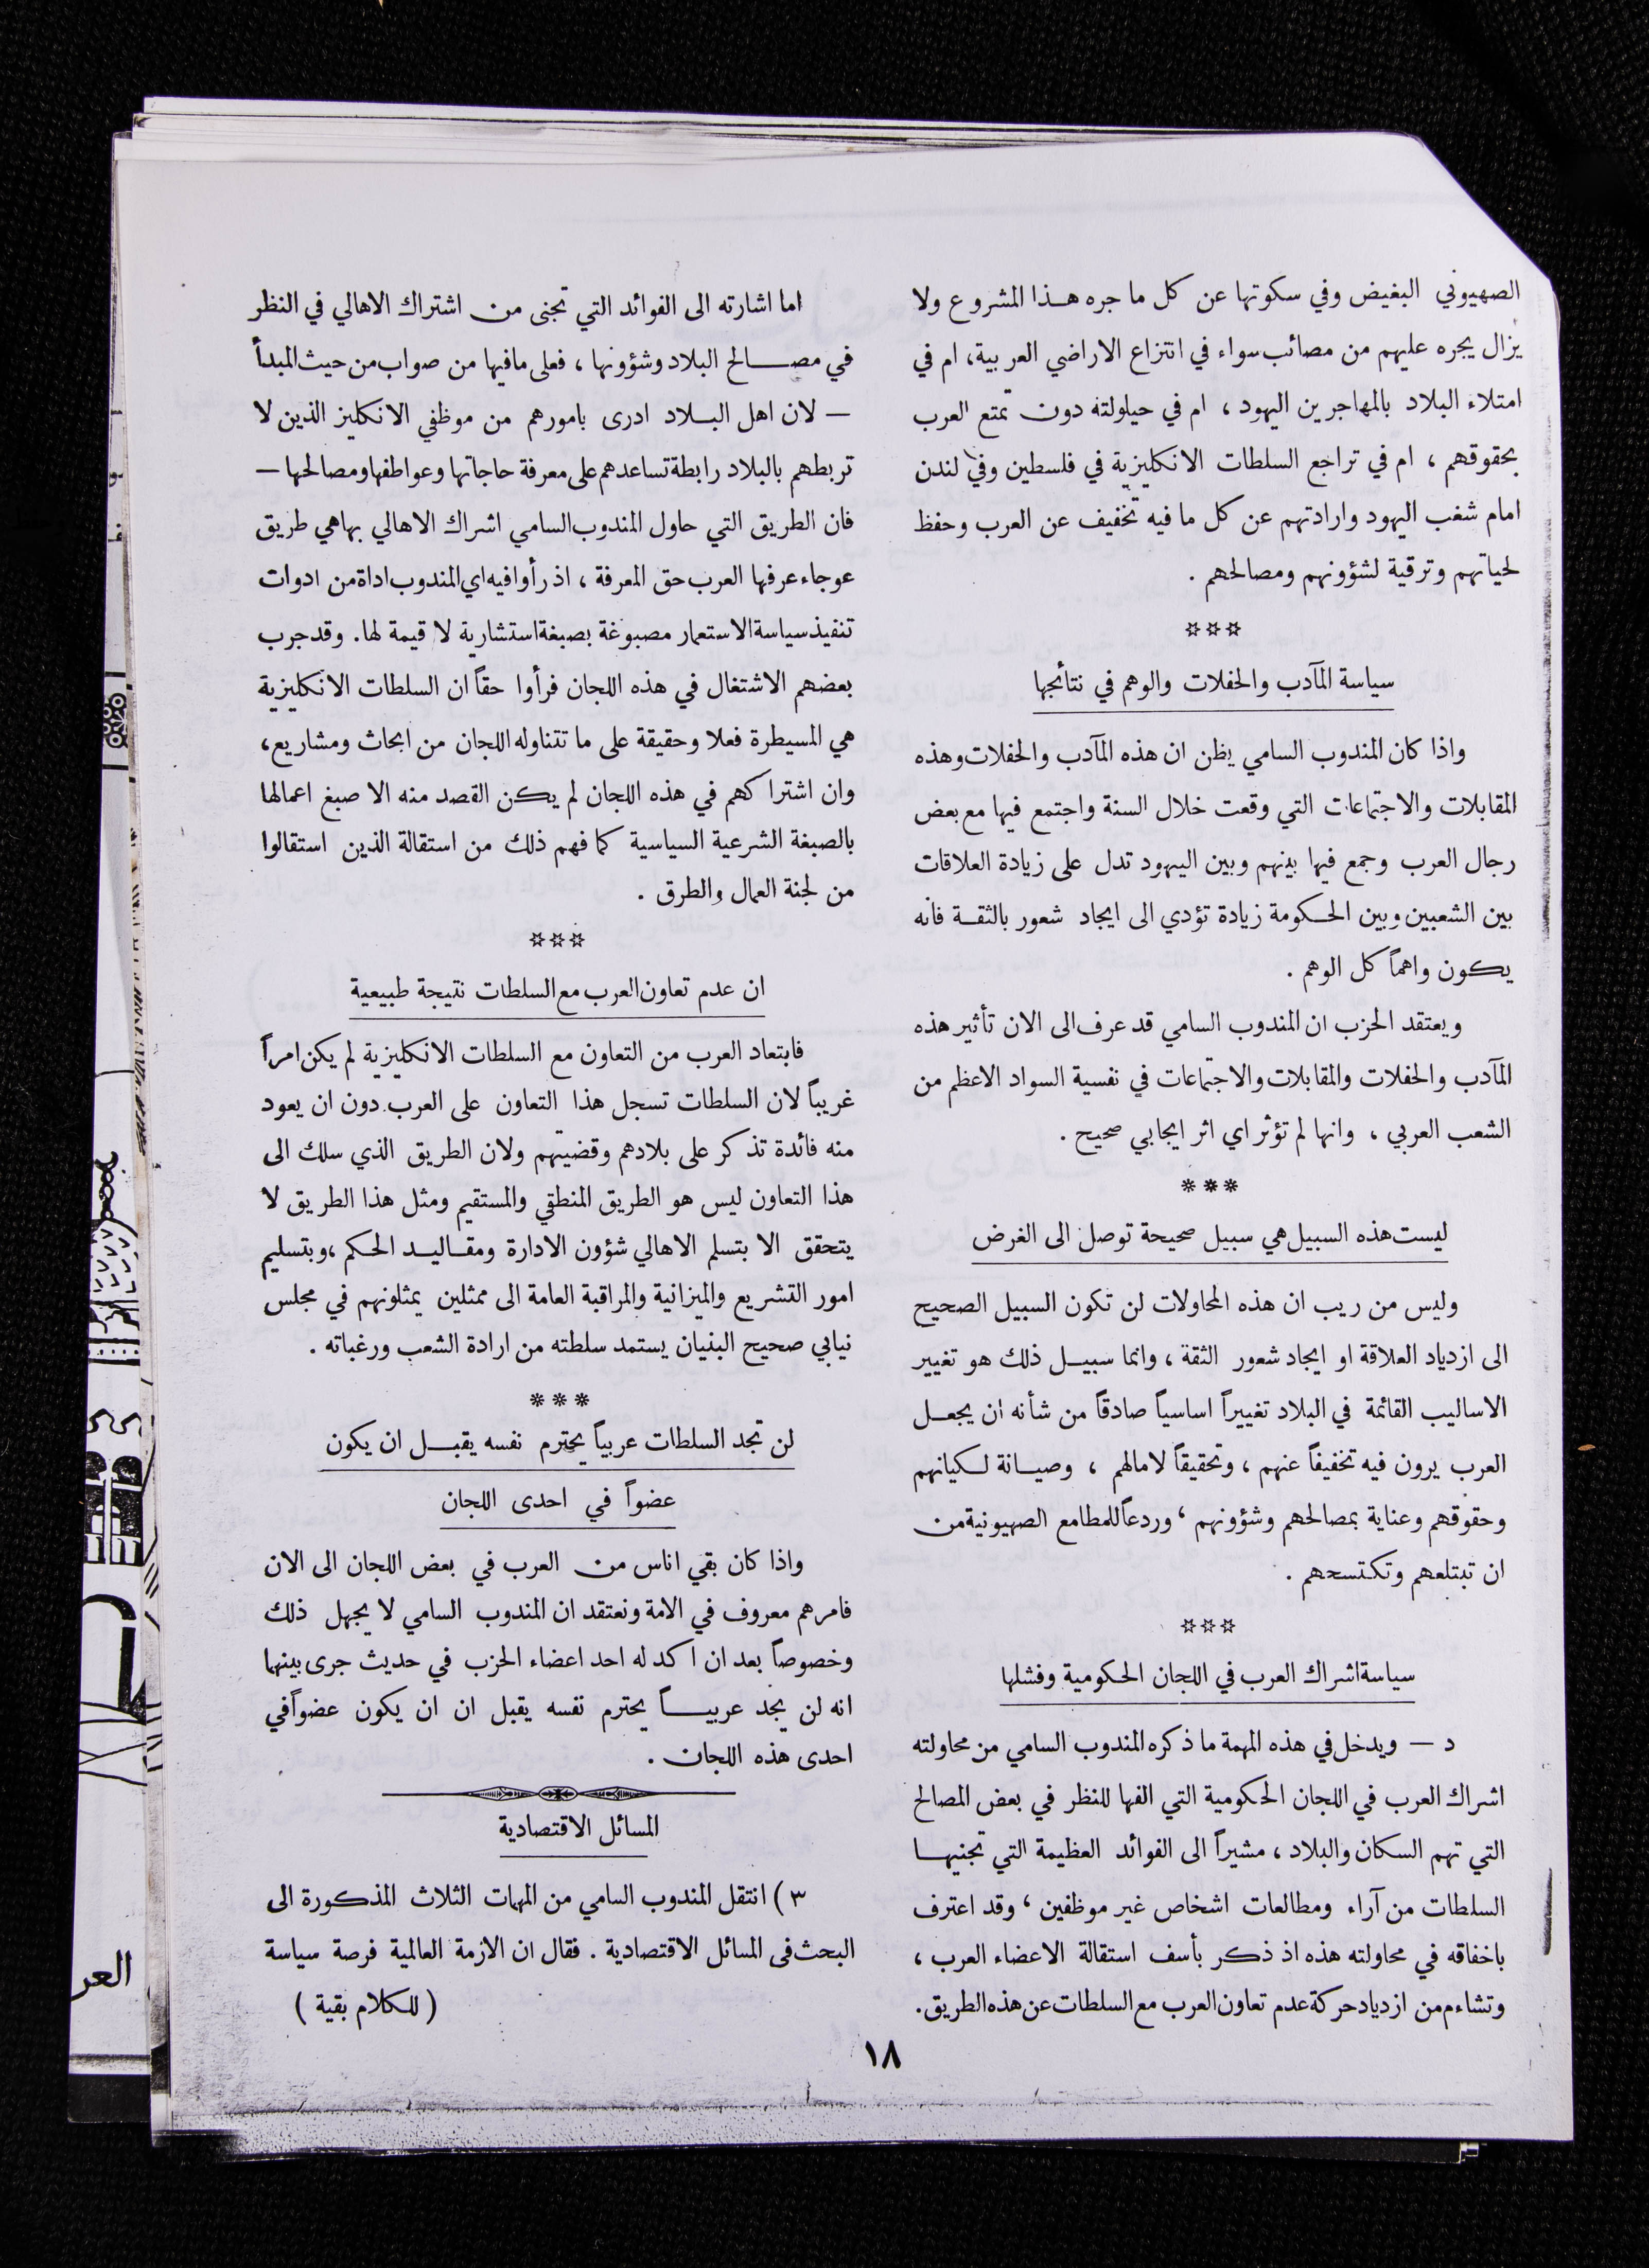 الصهيوني البغيض وفي سكوتها عن كل ما جره هذا المشروع ولا
يزال يجره عليهم من مصائب سواء في انتزاع الاراضي العربية، ام في
امتلاء البلاد بالمهاجرين اليهود، ام في حيلولته دون تمتع العرب
بحقوقهم، ام في تراجع السلطات الانكليزية في فلسطين وفي لندن
امام شغب اليهود وارادتهم عن كل ما فيه تخفيف عن العرب وحفظ
لحياتهم وترقية لشؤونهم ومصالحهم.
***
سياسة المآدب والحفلات والوهم في نتائجها
واذا كان المندوب السامي يظن ان هذه المآدب والحفلات وهذه
المقابلات والاجتماعات التي وقعت خلال السنة واجتمع فيها مع بعض
رجال العرب وجمع فيها بينهم وبين اليهود تدل على زيادة العلاقات
بين الشعبين وبين الحكومة زيادة تؤدي الى ايجاد شعور بالثقة فانه
يكون واهماً كل الوهم.
ويعتقد الحزب ان المندوب السامي قد عرف الى الان تأثير هذه
المآدب والحفلات والمقابلات والاجتماعات في نفسية السواد الاعظم من
الشعب العربي، وانها لم تؤثر اي اثر ايجابي صحيح.
***
ليست هذه السبيل هي سبيل صحيحة توصل الى الغرض
وليس من ريب ان هذه المحاولات لن تكون السبيل الصحيح
الى ازدياد العلاقة او ايجاد شعور الثقة، وانما سبيل ذلك هو تغيير
الاساليب القائمة في البلاد تغييراً اساسياً صادقاً من شأنه ان يجعل
العرب يرون فيه تخفيفاً عنهم، وتحقيقاً لامالهم، وصيانة لكيانهم
وحقوقهم وعناية بمصالحهم وشؤونهم، وردعاً للمطامع الصهيونية من
ان تبتلعهم وتكتسحهم.
***
سياسة اشراك العرب في اللجان الحكومية وفشلها
د — ويدخل في هذه المهمة ما ذكره المندوب السامي من محاولته
اشراك العرب في اللجان الحكومية التي الفها للنظر في بعض المصالح
التي تهم السكان والبلاد، مشيراً الى الفوائد العظيمة التي تجنيها
السلطات من آراء ومطالعات اشخاص غير موظفين، وقد اعترف
باخفاقه في محاولته هذه اذ ذكر بأسف استقالة الاعضاء العرب،
وتشاءم من ازدياد حركة عدم تعاون العرب مع السلطات عن هذه الطريق.
اما اشارته الى الفوائد التي تجنى من اشتراك الاهالي في النظر
في مصالح البلاد وشؤونها، فعلى مافيها من صواب من حيث المبدأ
— لان اهل البلاد ادرى بامورهم من موظفي الانكليز الذين لا
تربطهم بالبلاد رابطة تساعدهم على معرفة حاجاتها وعواطفها ومصالحها —
فان الطريق التي حاول المندوب السامي اشراك الاهالي بها هي طريق
عوجاء عرفها العرب حق المعرفة، اذ رأوا فيه اي المندوب اداة من ادوات
تنفيذ سياسة الاستعمار مصبوغة بصبغة استشارية لا قيمة لها. وقد جرب
بعضهم الاشتغال في هذه اللجان فرأوا حقاً ان السلطات الانكليزية
هي المسيطرة فعلا وحقيقة على ما تتناوله اللجان من ابحاث ومشاريع،
وان اشتراكهم في هذه اللجان لم يكن القصد منه الا صبغ اعمالها
بالصبغة الشرعية السياسية كما فهم ذلك من استقالة الذين استقالوا
من لجنة العمال والطرق.
***
ان عدم تعاون العرب مع السلطات نتيجة طبيعية
فابتعاد العرب من التعاون مع السلطات الانكليزية لم يكن امراً
غريباً لان السلطات تسجل هذا التعاون على العرب دون ان يعود
منه فائدة تذكر على بلادهم وقضيتهم ولان الطريق الذي سلك الى
هذا التعاون ليس هو الطريق المنطقي والمستقيم ومثل هذا الطريق لا
يتحقق الا بتسلم الاهالي شؤون الادارة ومقاليد الحكم، وبتسليم
امور التشريع والميزانية والمراقبة العامة الى ممثلين يمثلونهم في مجلس
نيابي صحيح البنيان يستمد سلطته من ارادة الشعب ورغباته.
***
لن تجد السلطات عربياً يحترم نفسه يقبل ان يكون
عضواً في احدى اللجان
واذا كان بقي اناس من العرب في بعض اللجان الى الان
فامرهم معروف في الامة ونعتقد ان المندوب السامي لا يجهل ذلك
وخصوصاً بعد ان اكد له احد اعضاء الحزب في حديث جرى بينهما
انه لن يجد عربياً يحترم نفسه يقبل ان ان يكون عضواً في
احدى هذه اللجان.
المسائل الاقتصادية
٣) انتقل المندوب السامي من المهات الثلاث المذكورة الى
البحث فى المسائل الاقتصادية. فقال ان الازمة العالمية فرصة سياسة
(للكلام بقية)
١٨
العر